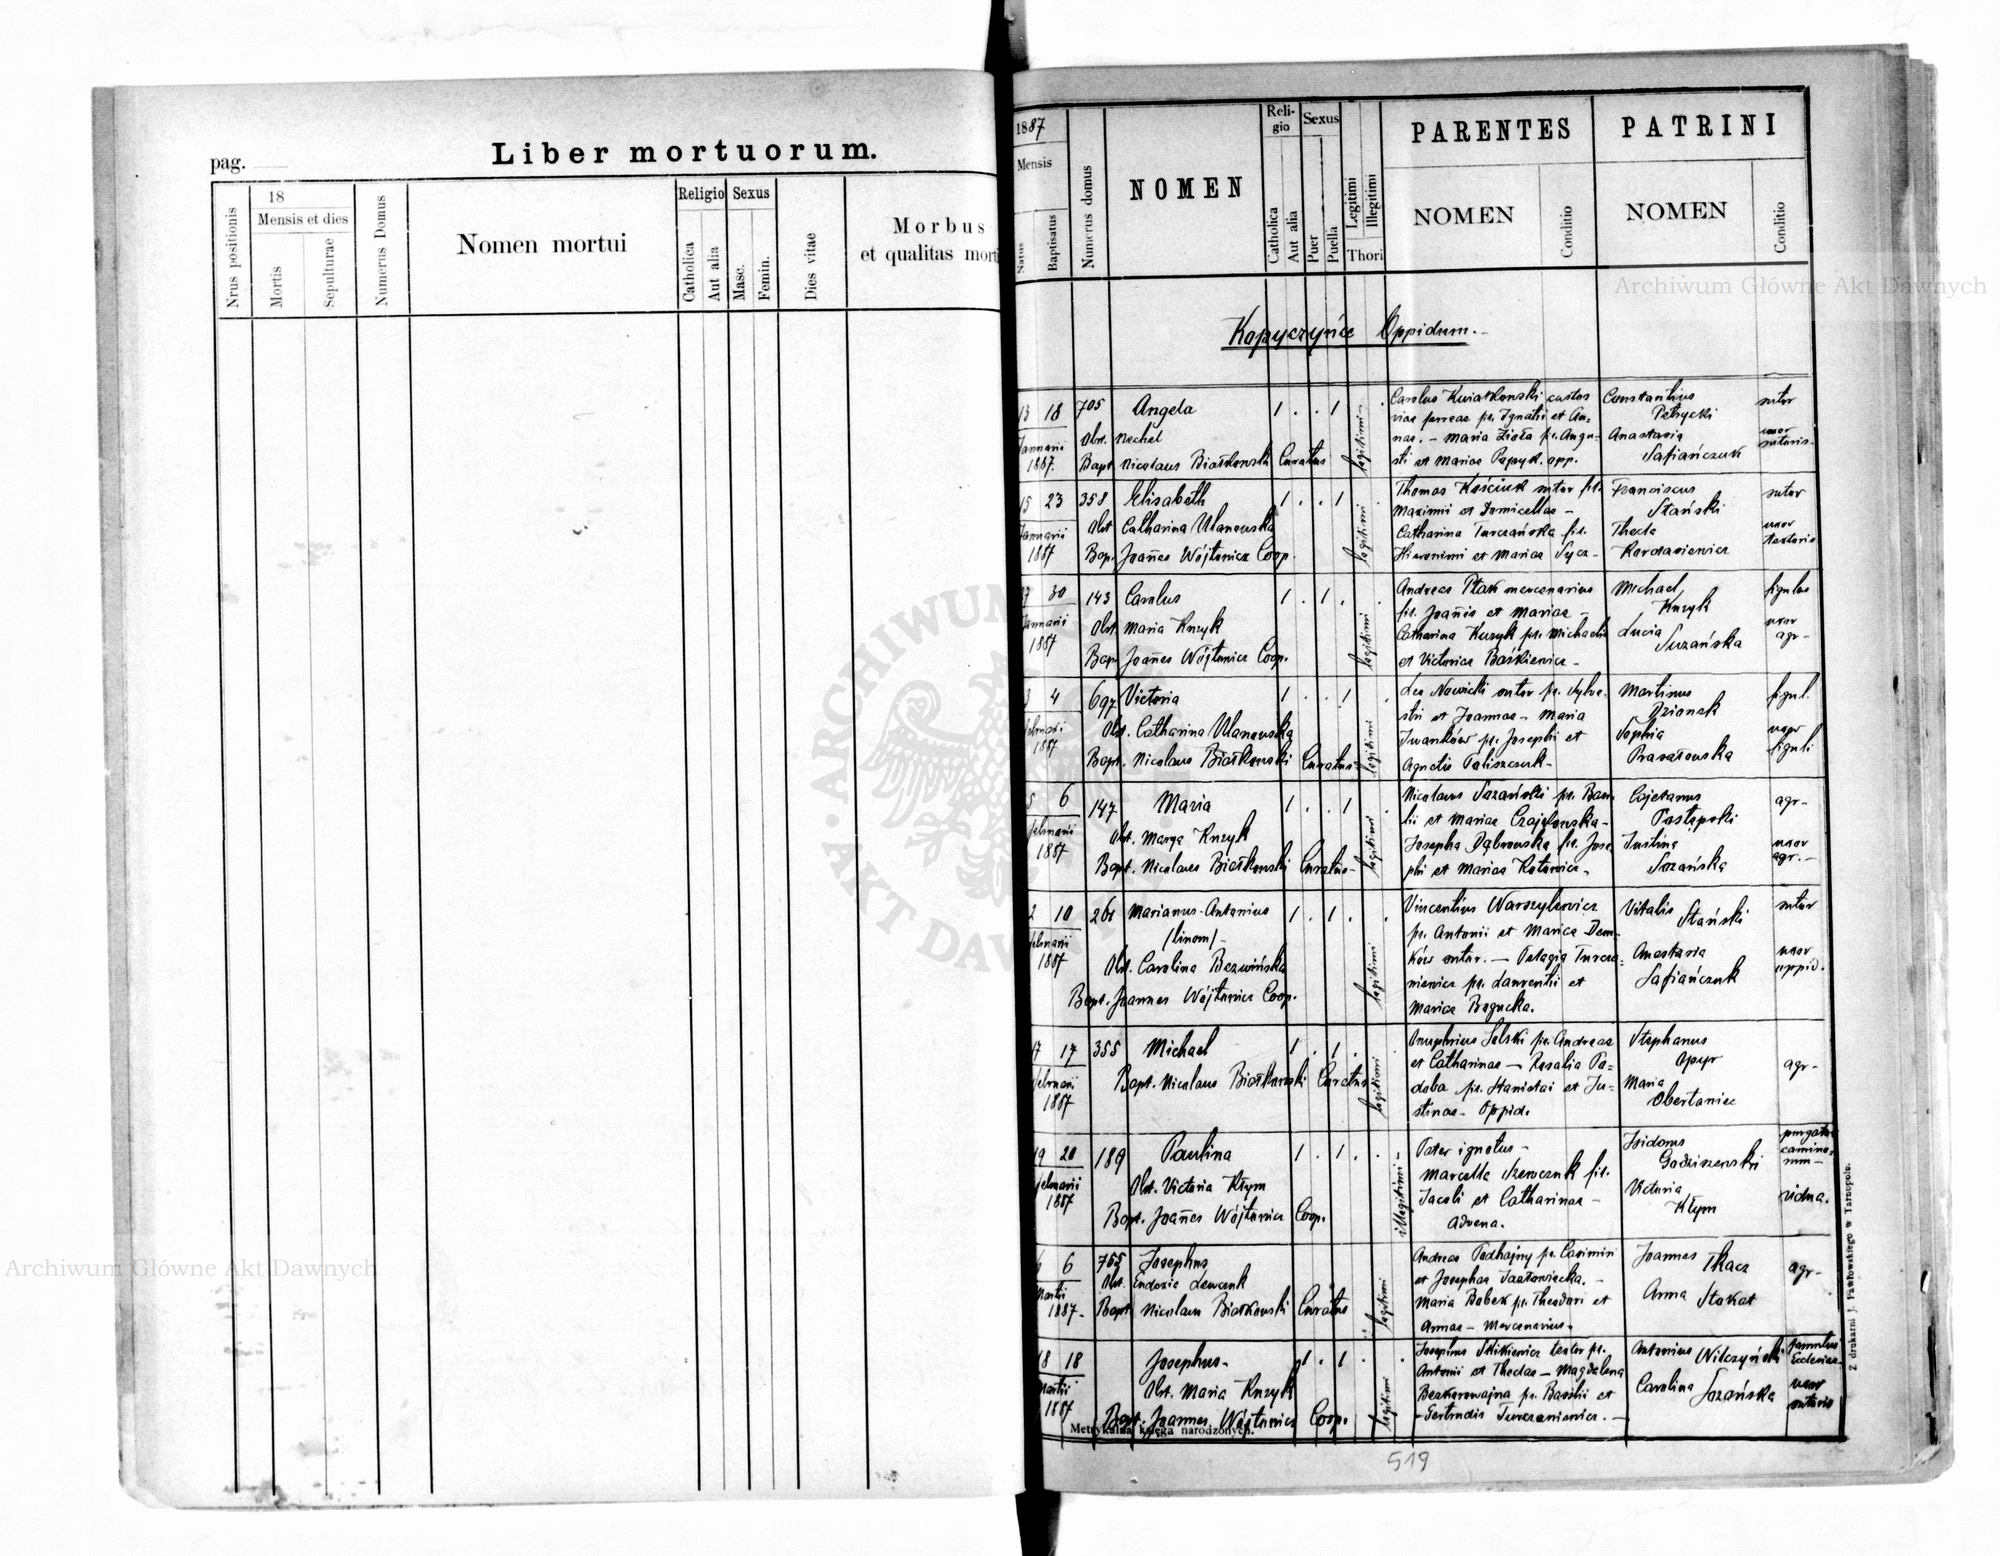 pag.
Liber mortuorum.
Nrus positionis
18
Mensis et dies
Mortis
Sepulturae
Numerus Domus
Nomen mortui
Religio
Catholica
Aut alia
Sexus
Masc.
Femin.
Dies vitae
Morbus
et qualitas mort
1887
Mensis
Natus
Baptisatus
Numerus domus
NOMEN
Reli-
gio
Catholica
Aut alia
Sexus
Puer
Puella
Legitimi
Illegitimi
Thori
PARENTES
NOMEN
Conditio
PATRINI
NOMEN
Conditio
Kopyczyńce Oppidum.-
13 18 705 Angela 1 . . 1 .
Januarii
1887.
Obst. Nechel
Bapt. Nicolaus Białkowski Curatus
legitimi
Carolus Kwiatkowski custos
viae ferreae fil. Ignatii et An-
nae. - Maria Zioła fil. Augu-
sti et Mariae opp.
Constantius
Petrycki
Anastasia
Safiańczuk
sutor
uxor
sutoris-
15 23 358 Elisabeth 1 . . 1 .
Januarii
1887
Obst Catharina Ulanowska
Bap. Joañes Wójtowicz Coop.
legitimi
Thomas Kościuk sutor fil.
Maximi et Domicellae -
Catharina Turczańska fil.
Hieronimi et Mariae Sycz-
Franciscus
Stański
Thecla
Kordasiewicz
sutor
uxor
textoris
30 143 Carolus 1 . 1 . .
Januarii
1887
Obst. Maria Kuzyk
Bap. Joañes Wójtowicz Coop.
legitimi
Andreas Ptak mercenarius
fil. Joañis et Mariae -
Catharina Kuzyk fil. Michaelis
et Victoriae Baśkiewicz -
Michael
Kuzyk
Lucia
Suzańska
figulus
uxor
agr-
3 4 697 Victoria 1 . . 1 .
1887
Obst. Catharina Ulanowska
Bapt. Nicolaus Białkowski Curatus
legitimi
Leo Nowicki sutor fil. Sylve-
stri et Joannae - Maria
Iwanków fil. Josephi et
Agnetis Paliszczuk-
Martinus
Dzionek
Sophia
Prasałowska
figul.
uxor
figuli
5 6 147 Maria 1 . . 1 .
1887
Obst. Marya Kuzyk
Bapt. Nicolaus Białkowski Curatus-
legitimi
Nicolaus Sozański fil. Basi-
lii et Mariae Czajkowska-
Josepha Dąbrowska fil. Jose-
phi et Mariae Kotowicz-
Cajetanus
Postępski
Justina
Sozańska
agr-
uxor
agr.-
2 10 261 Marianus-Antonius 1 . 1 . .
/binom/-
1887
Obst. Carolina Bezwińska
Bapt. Joannes Wójtowicz Coop.
legitimi
Vincentius Warszylewicz
fil. Antonii et Mariae Dem-
ków sutor. - Pelagia Turcza-
niewicz fil. Laurentii et
Mariae Bogucka.
Vitalis
Stański
Anastasia
Safiańczuk
sutor
uxor
oppid.
17 17 355 Michael 1 . 1 . .
1887
Bapt. Nicolaus Białkowski Curatus
legitimi
Onuphrius Selski fil. Andreae
et Catharinae - Rosalia Pa-
doba fil. Stanislai et Ju-
stinae - Oppid.
Stephanus
Maria
Obertaniec
agr-
19 20 189 Paulina 1 . 1 . .
1887
Obst. Victoria Kłym
Bapt. Joañes Wójtowicz Coop.
illegitimi-
Pater ignotus -
Marcella Szewczuk fil.
Jacobi et Catharinae -
advena.
Isidorus
Godziszewski
Victoria
Kłym
purgator
camino-
rum-
vidua.
6 6 765 Josephus
Martii
1887-
Obst. Eudoxia Lewczuk
Bapt Nicolaus Białkowski Curatus
legitimi
Andreas Podhajny fil. Casimiri
et Josephae -
Maria Bobek fil. Theodori et
Annae - Mercenarius.
Joannes Tkacz
Anna Stokot
agr-
18 18 Josephus- 1 . 1 . .
Martii
1887
Obst. Maria Kuzyk
Bapt. Joannes Wójtowicz Coop.
legitimi
Josephus Skikiewicz textor fil.
Antonii et Theclae - Magdalena
Bezkorowajna fil. Basilii et
Gertrudis Turczaniewicz. -
Antonius Wilczyński
Carolina Sozańska
famulus
Ecclesiae
uxor
sutoris
Metrykalna księga narodzonych.
Z drukarni J. Pawłowskiego w Tarnopolu.
519
Archiwum Główne Akt Dawnych
Archiwum Główne Akt Dawnych
ARCHIWUM · AKT DAWNYCH